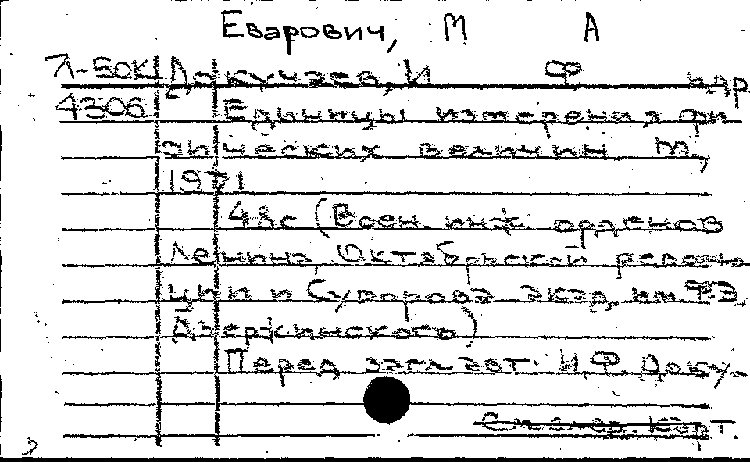 Еварович, М А
Л-50К Докучаев, И Ф и др
4306 Единицы измерения фи
зических величин М,
1971
48с (Воен. инж орденов
Ленина, Октябрьской револю
ции и Суворова акад. им Ф.Э.
Дзержинского)
Перед загл авт: И.Ф. Доку-
След. карт.